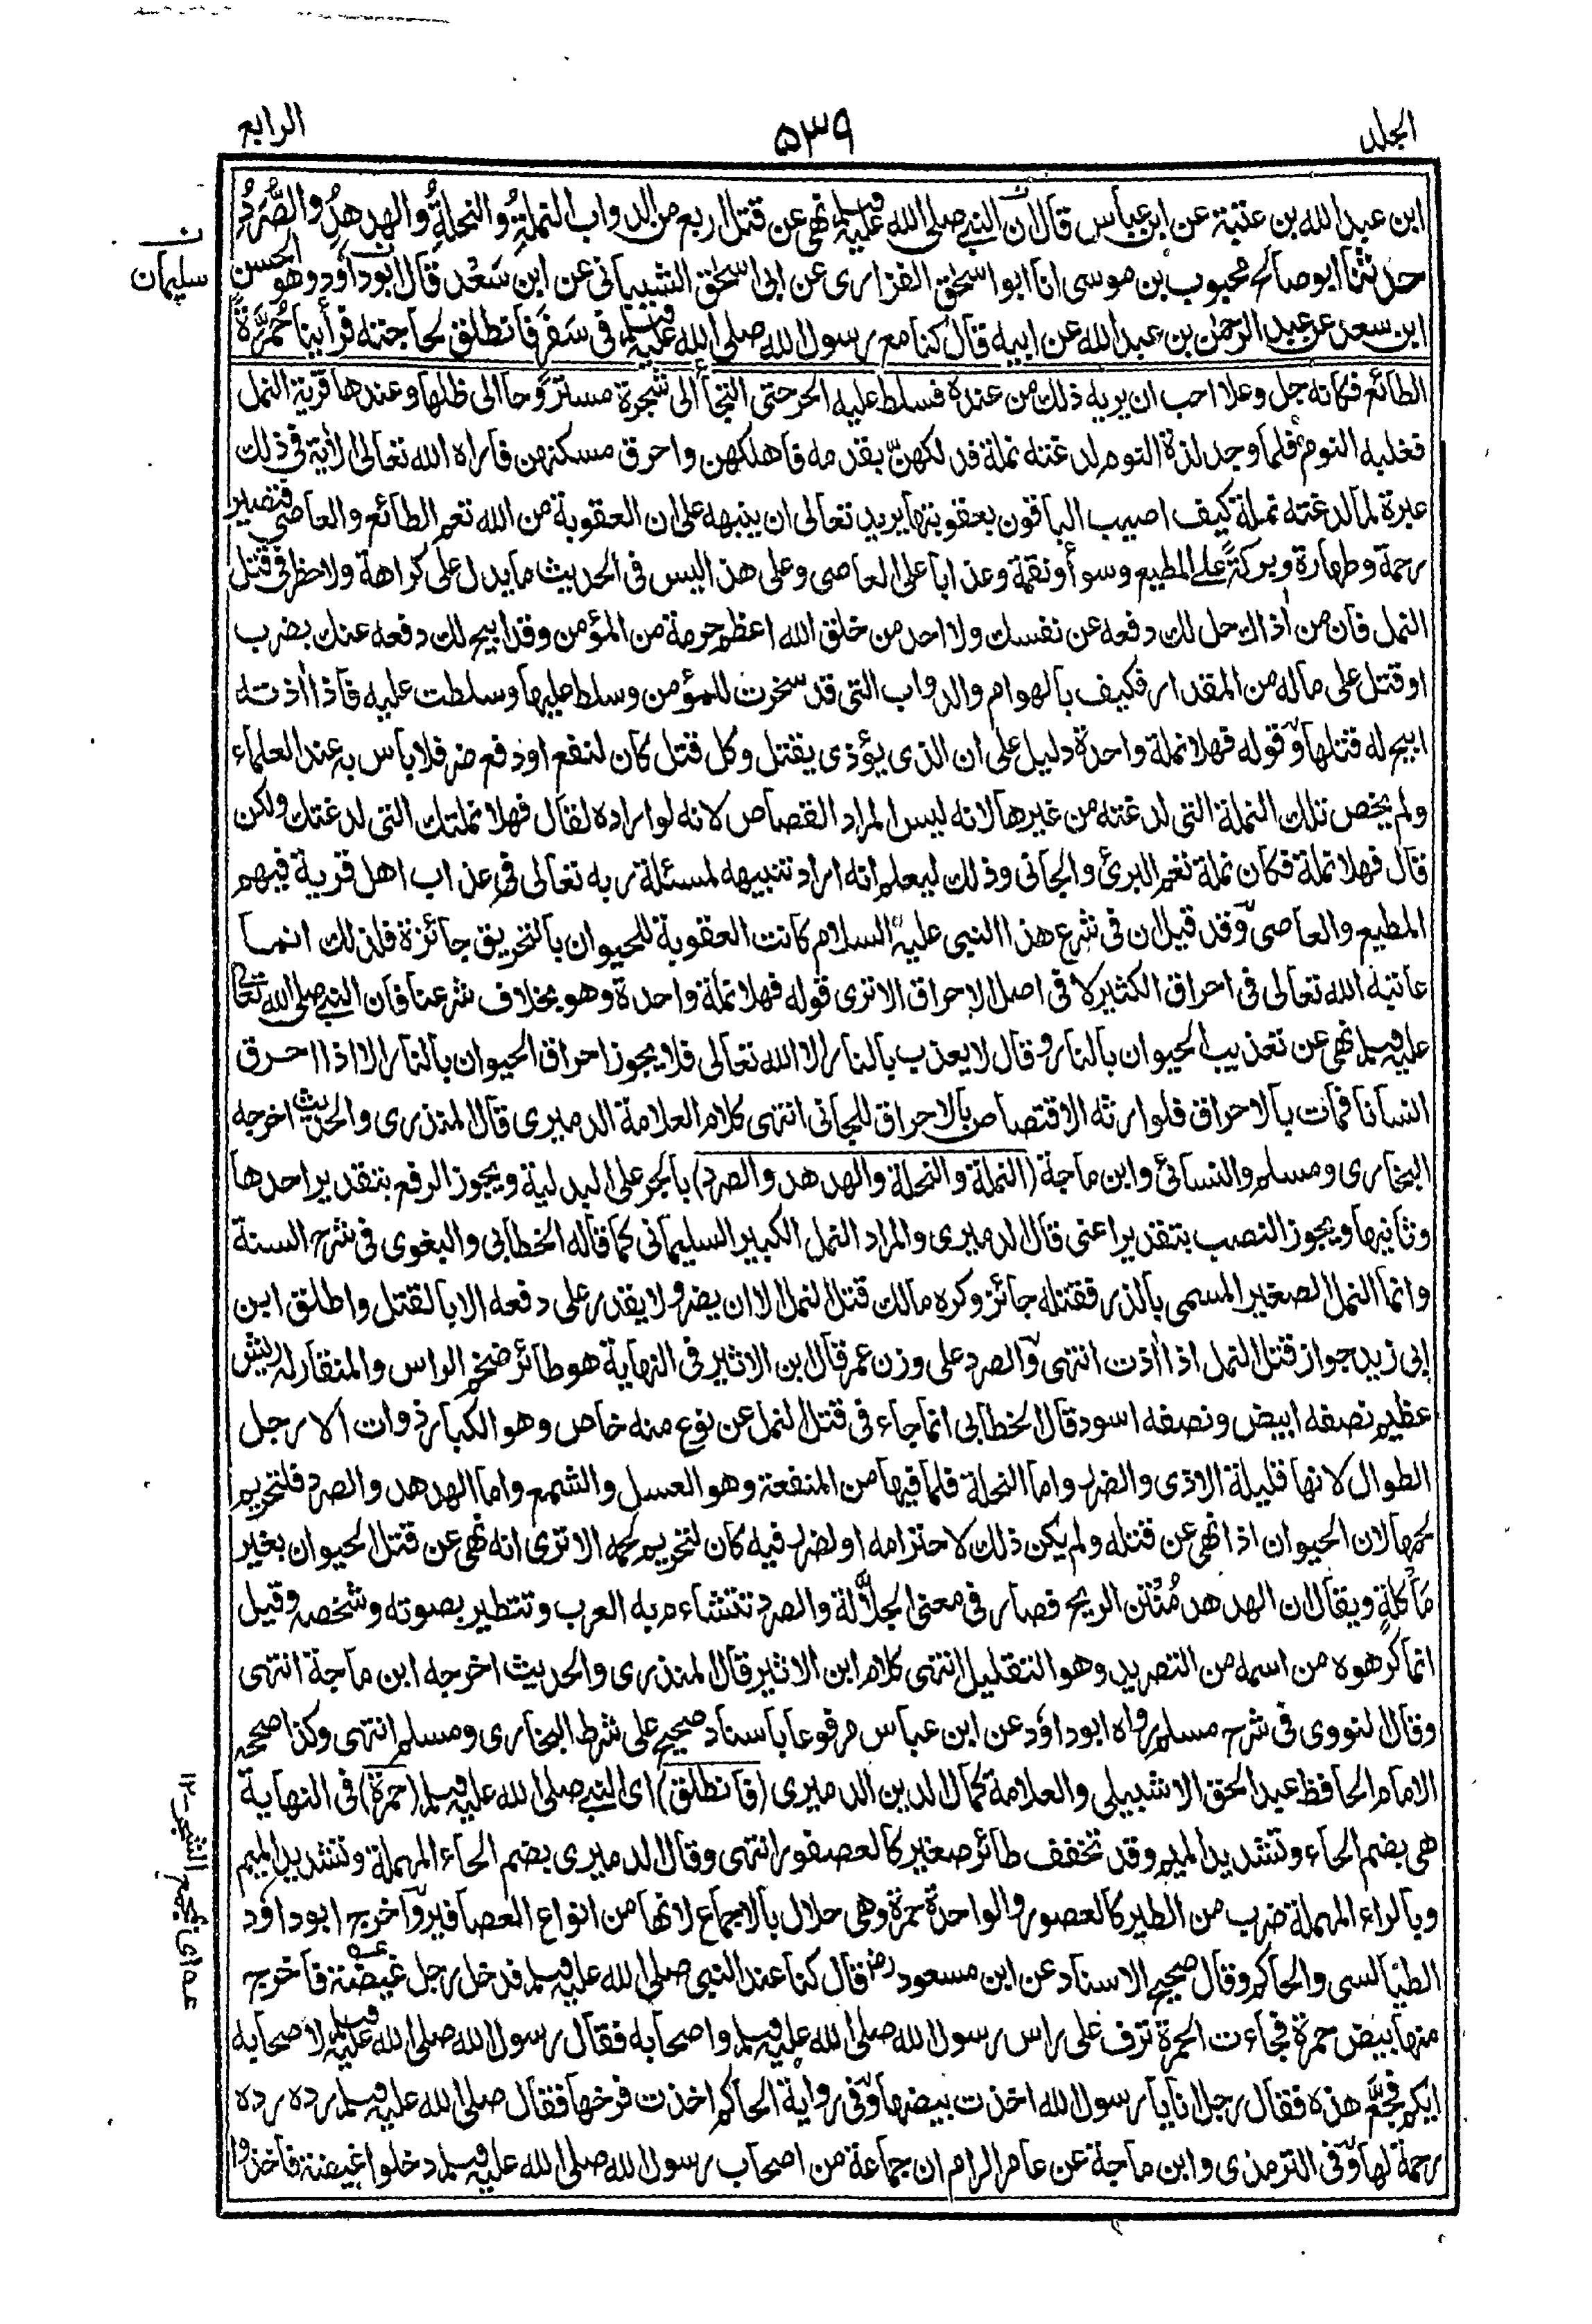 الجلد ٥٣٩ الرابع
ابن عبد الله بن عتبة عن ابن عباس قال ان النبي صلى الله عليه وسلم نهى عن قتل اربع من الدواب النملةُ والنحلةُ والهدهدُ والصُّرَدُ
حدثنا ابو صالح محبوب بن موسى انا ابو اسحق الفزاري عن ابى اسحق الشيبانى عن ابن سَعْد قال ابو داود وهو الحسن
سليمان
ابن سعد عن عبد الرحمن بن عبد الله عن ابيه قال كنا مع رسول الله صلى الله عليه وسلم فى سَفَر فانطلق لحاجته فرأينا حُمَّرَةً
الطائع فكانه جل وعلا احب ان يريه ذلك من عنده فسلط عليه الحر حتى التجأ الى شجرة مستروحا الى ظلها وعندها قرية النمل
فغلبه النوم فلما وجد لذة النوم لدغته نملة فدلكهن بقدمه فاهلكهن واحرق مسكنهن فاراه الله تعالى الأية فى ذلك
عبرة لما لدغته نملة كيف اصيب الباقون بعقوبتها يريد تعالى ان ينبهه على ان العقوبة من الله تعم الطائع والعاصى فتصير
رحمة وطهارة وبركة على المطيع وسوأ ونقمة وعذابا على العاصى وعلى هذا ليس فى الحديث ما يدل على كراهة ولا حظر فى قتل
النمل فان من أذاك حل لك دفعه عن نفسك ولا احد من خلق الله اعظم حرمة من المؤمن وقد ابيح لك دفعه عنك بضرب
او قتل على ماله من المقدار فكيف بالهوام والدواب التى قد سخرت للمؤمن وسلط عليها وسلطت عليه فاذا أذته
ابيح له قتلها وقوله فهلا نملة واحدة دليل على ان الذى يؤذى يقتل وكل قتل كان لنفع او دفع ضر فلا باس به عند العلماء
ولم يخص تلك النملة التى لدغته من غيرها لانه ليس المراد القصاص لانه لو اراده لقال فهلا نملتك التى لدغتك ولكن
قال فهلا نملة فكان نملة تعم البرئ والجانى وذلك ليعلم انه اراد تنبيهه لمسئلة ربه تعالى فى عذاب اهل قرية فيهم
المطيع والعاصى وقد قيل ان فى شرع هذا النبى عليه السلام كانت العقوبة للحيوان بالتحريق جائزة فلذلك انما
عاتبه الله تعالى فى احراق الكثير لا فى اصل الاحراق الا ترى قوله فهلا نملة واحدة وهو بخلاف شرعنا فان النبى صلى الله تعالى
عليه وسلم نهى عن تعذيب الحيوان بالنار وقال لا يعذب بالنار الا الله تعالى فلا يجوز احراق الحيوان بالنار الا اذا احرق
انسانا فمات بالاحراق فلوارثه الاقتصاص بالاحراق للجانى انتهى كلام العلامة الدميرى قال المنذرى والحديث اخرجه
البخارى ومسلم والنسائى وابن ماجة (النملة والنحلة والهدهد والصرد) بالجر على البدلية ويجوز الرفع بتقدير احدها
وثانيها ويجوز النصب بتقدير اعنى قال الدميرى والمراد النمل الكبير السليمانى كما قاله الخطابى والبغوى فى شرح السنة
وانما النمل الصغير المسمى بالذر فقتله جائز وكره مالك قتل النمل الا ان يضر ولا يقدر على دفعه الا بالقتل واطلق ابن
ابى زيد جواز قتل النمل اذا أذت انتهى والصرد على وزن عمر قال ابن الاثير فى النهاية هو طائر ضخم الراس والمنقار له ريش
عظيم نصفه ابيض ونصفه اسود قال الخطابى انما جاء فى قتل النمل عن نوع منه خاص وهو الكبار ذوات الارجل
الطوال لانها قليلة الاذى والضرر واما النحلة فلما فيها من المنفعة وهو العسل والشمع واما الهدهد والصرد فلتحريم
لحمها لان الحيوان اذا نهى عن قتله ولم يكن ذلك لاحترامه او لضرر فيه كان لتحريم لحمه الا ترى انه نهى عن قتل الحيوان بغير
مأكلةٍ ويقال ان الهدهد مُنْتن الريح فصار فى معنى الجلَّالة والصرد تتشاءم به العرب وتتطير بصوته وشخصه وقيل
انما كرهوه من اسمه من التصريد وهو التقليل انتهى كلام ابن الاثير قال المنذرى والحديث اخرجه ابن ماجة انتهى
وقال النووى فى شرح مسلم رواه ابو داود عن ابن عباس مرفوعا باسناد صحيح على شرط البخارى ومسلم انتهى وكذا صححه
الامام الحافظ عبد الحق الاشبيلى والعلامة كمال الدين الدميرى (فانطلق) اى النبى صلى الله عليه وسلم (حمرة) فى النهاية
هى بضم الحاء وتشديد الميم وقد تخفف طائر صغير كالعصفور انتهى وقال الدميرى بضم الحاء المهملة وتشديد الميم
وبالراء المهملة ضرب من الطير كالعصور والواحدة حمرة وهى حلال بالاجماع لانها من انواع العصافير واخرج ابو داود
الطيالسى والحاكم وقال صحيح الاسناد عن ابن مسعود رض قال كنا عند النبى صلى الله عليه وسلم فدخل رجل غيضة عــه فاخرج
منها بيض حمرة فجاءت الحمرة ترف على راس رسول الله صلى الله عليه وسلم واصحابه فقال رسول الله صلى الله عليه وسلم لاصحابه
ايكم فجَّع هذه فقال رجل انا يا رسول الله اخذت بيضها وفى رواية الحاكم اخذت فرخها فقال صلى الله عليه وسلم رده رده
رحمة لها وفى الترمذى وابن ماجة عن عامر الرام ان جماعة من اصحاب رسول الله صلى الله عليه وسلم دخلوا غيضة فاخذوا
عــه اى مجمع الشجر ١٢